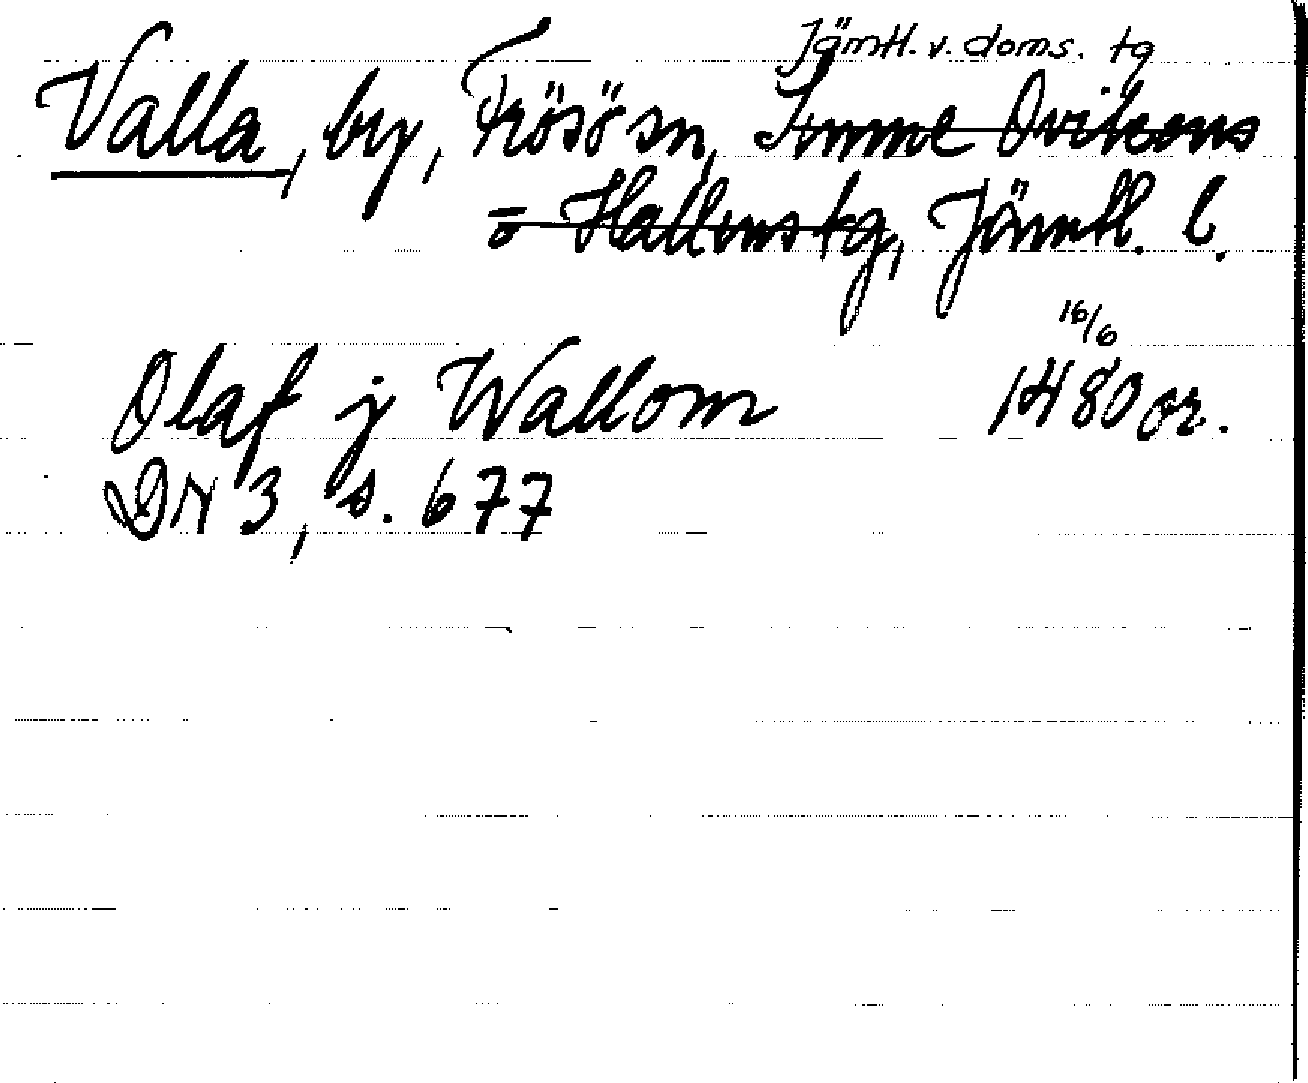 Jämtl. v. doms. tg
Valla, by, Frösö sn, Sunne Ovikens
o Hallens tg, Jämtl. l.
16/6
Olaf j Wallom 1480 or.
DN 3, s. 677